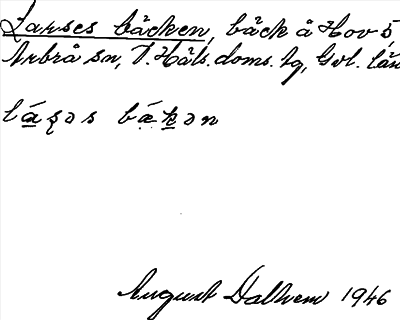 Larses bäcken, bäck å Hov 5,
Arbrå sn, V. Häls. doms. tg, Gvl. län
lᴀ́s̨əs bǽk̲ən
August Dalhem 1946